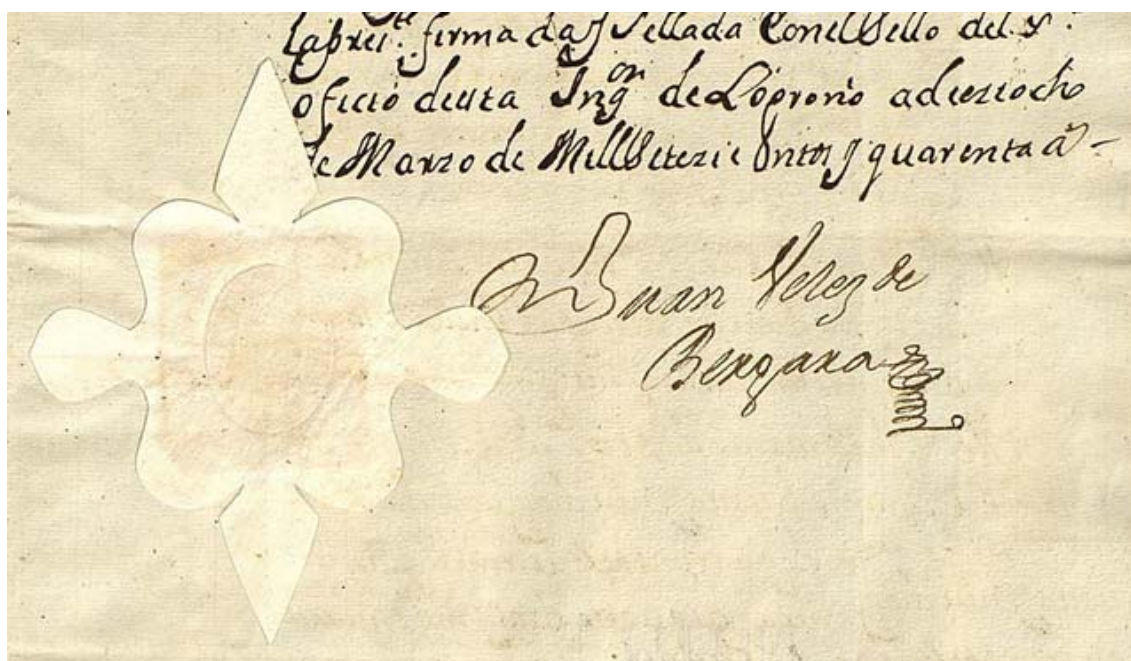 lapreste. firmada y Sellada Con el Sello del Sto.
oficio desta Inqon. de Logroño a diez iocho
de Marzo de Mill Setezientos y quarenta a.s
Juan Velez de
Bergara